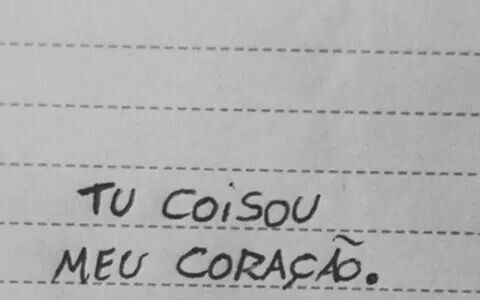 TU COISOU
MEU CORAÇÃO.